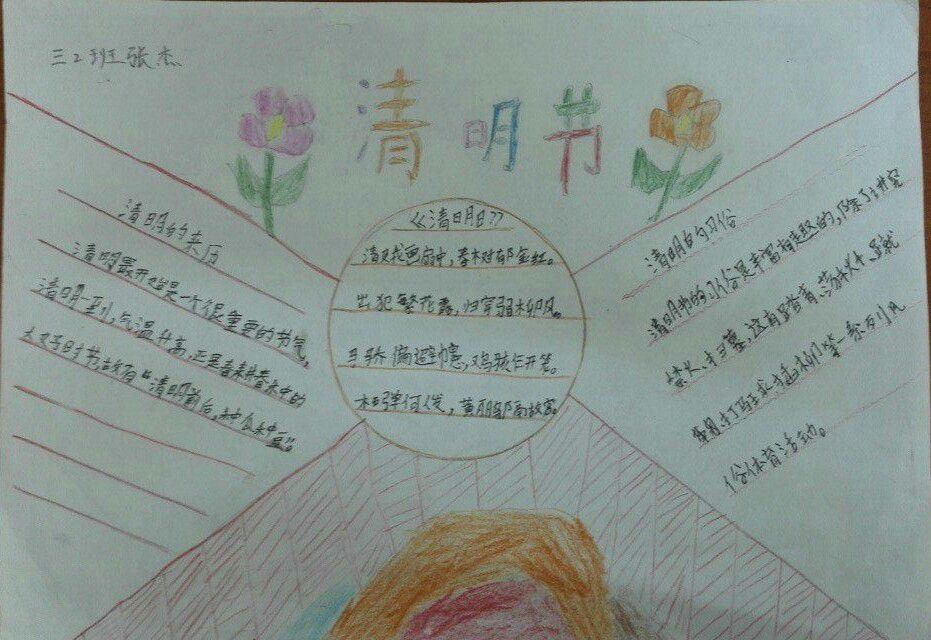 三2班张杰
清明节
清明的来历
清明最开始是一个很重要的节气,
清明一到,气温升高,正是春耕春种的
大好时节,故有"清明前后,种瓜种豆"。
《清明日》
清娥画扇中,春树郁金红。
出犯繁花露,归穿弱柳风。
马骄偏避幰,鸡骇乍开笼。
柘弹何人发,黄鹂故宫。
清明的习俗
清明节的习俗是丰富有趣的,除了讲究
禁火、扫墓,还有踏青、荡秋千、蹴
鞠、打马球、插柳等一系列风
俗体育活动。